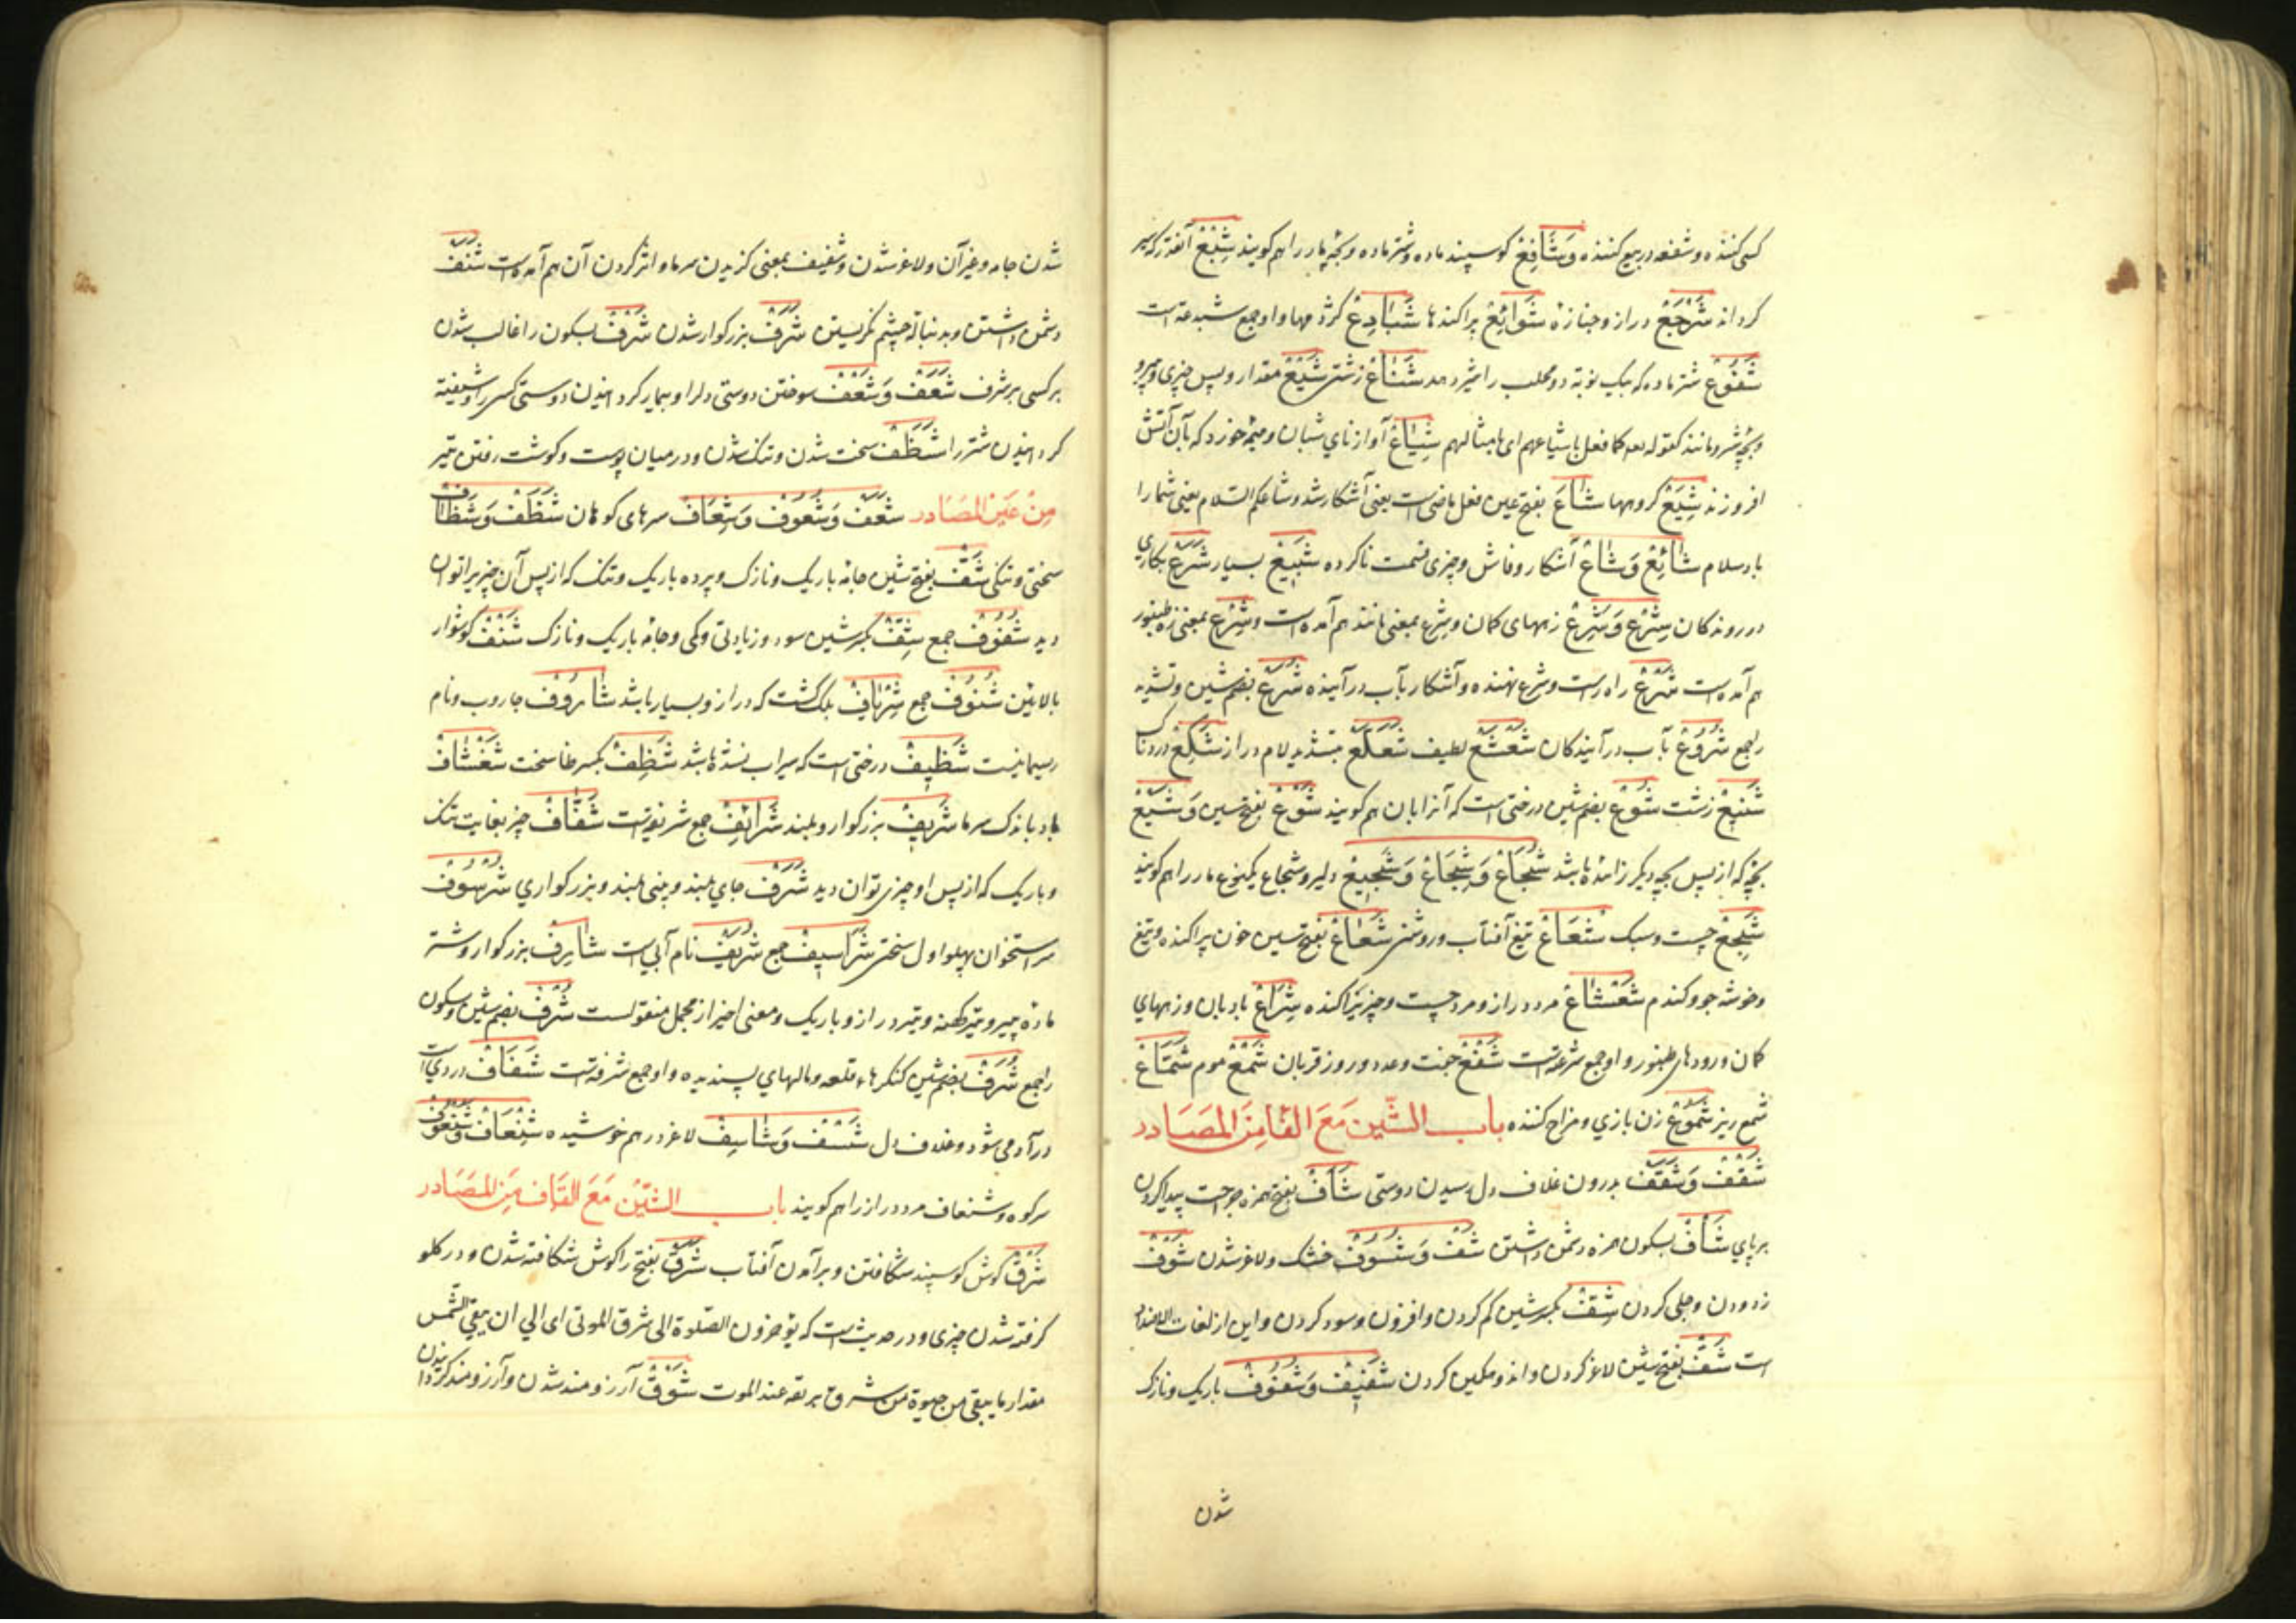 کسی کننده و شفعه در بیع کننده وَشَافِعْ کوسپند ماده و شتر ماده و بچه مادر را هم کویند شِبْعْ آنقدر که سیر
کرداند شَرْجَعْ دراز و جنازه شَوَائِعْ پراکندها شَبَادِعْ کژدمها و او جمع شبدعة است
شَفُوعْ شتر ماده که بیک نوبة دو محلب را شیر دهد شَنَاعْ زشتی شَیْعْ مقدار و پس چیزی و پیرو
و بچه شیر و مانند کقوله تعه کما فعل باشیاعهم ای بامثالهم شِیَاعْ آواز نای شبان و هیمه خورد که بآن آتش
افروزند شِیَعْ کروهها شَاعَ بفتح عین فعل ماضی است یعنی آشکار شد و شاعکم السّلام یعنی شما را
باد سلام شَائِعْ وَشَاعْ آشکار و فاش و چیزی قسمت ناکرده شَبِیعْ بسیار شَرَعْ بکاری
در روندکان شِرْعْ وَشِرَعْ زههای کمان و شرع بمعنی مانند هم آمده است و شِرْعْ بمعنی زه طنبور
هم آمده است شَرْعْ راه راست و شرع نهنده و آشکار بآب درآینده شُرَّعْ بضم شین و تشدید
را جمع شُرُوعْ بآب درآیندکان شَعْشَعْ لطیف شَعَلَّعْ بتشدید لام دراز شَکِعْ دردناک
شَنِیعْ زشت شُوعْ بضم شین درختی است که آنرا بان هم کویند شَوْعْ بفتح شین وَشَیْعْ
بچه که از پس بچه دیکر زائیده باشد شُجَاعْ وَشِجَاعْ وَشَجِیعْ دلیر و شجاع یکنوع مار را هم کویند
شَجِعْ چست و سبک شُعَاعْ تیغ آفتاب و روشنی شَعَاعْ بفتح شین خون پراکنده و تیغ
و خوشه جو و کندم شَعْشَاعْ مرد دراز و مرد چست و چیز پراکنده شِرَاعْ بادبان و زههای
کمان و رودهای طنبور و او جمع شرعة است شَفْعْ جفت و عدد و روز قربان شَمْعْ موم شَمَّاعْ
شمع ریز شَمُوعْ زن بازی و مزاح کننده باب الشّین مَعَ الفَا مِنَ المَصَادر
شَغْف وَشَغَف بدرون غلاف دل رسیدن دوستی شَأَفْ بفتح همزه جراحت پیدا کردن
بر پای شَأْفْ بسکون همزه دشمن داشتن شَسْف وَشُسُوفْ خشک و لاغر شدن شَوْفْ
زدودن و جلی کردن شِفّْ بکسر شین کم کردن و افزون و سود کردن و این از لغات الاضداد
است شَفّْ بفتح شین لاغر کردن و اندوهکین کردن شَفِیف وَشُفُوفْ باریک و نازک
شدن
شدن جامه و غیر آن و لاغر شدن و شفیف بمعنی کزیدن سرما و اثر کردن آن هم آمده است شَنَفْ
دشمن داشتن و بدنباله چشم نکریستن شَرَفْ بزرکوار شدن شَرْفْ بسکون را غالب شدن
بر کسی بشرف شَعَفْ وَشَعْفْ سوختن دوستی دل را و بیمار کردانیدن دوستی کسی را و شیفته
کردانیدن شتر را شَظَفْ سخت شدن و تنک شدن و در میان پوست و کوشت رفتن تیر
مِنْ غَیْرِ المَصَادر شَعَفْ وَشُعُوفْ وَشِعَافْ سرهای کوهان شَظَفْ وَشِظَافْ
سختی و تنکی شَفّْ بفتح شین جامه باریک و نازک و پرده باریک و تنک که از پس آن چیزی را توان
دید شُفُوفْ جمع شِفّْ بکسر شین سود و زیادتی و کمی و جامه باریک و نازک شَنْفْ کوشوار
بالائین شُنُوفْ جمع شِرْیَافْ بلک کشت که دراز و بسیار باشد شَارُوفْ جاروب و نام
ریسمانیست شَظِیفْ درختی است که سیراب نشده باشد شَظِفْ بکسر ظا سخت شَفْشَافْ
باد باندک سرما شَرِیفْ بزرکوار و بلند شَرَائِفْ جمع شریفة است شَفَّافْ چیز بغایت تنک
و باریک که از پس او چیزی توان دید شَرَفْ جای بلند و بینی بلند و بزرکواری شُرْسُوفْ
سر استخوان پهلو اول سختی شَرَاسِیفْ جمع شُرَیْفْ نام آبی است شَارِفْ بزرکوار و شتر
ماده پیر و تیر کهنه و تیر دراز و باریک و معنی اخیر از مجمل منقولست شُرْفْ بضم شین و سکون
را جمع شُرَفْ بضم شین کنکرهاء قلعه و مالهای پسندیده و او جمع شرفة است شَغَافْ دردی است
درآدمی شود و غلاف دل شَسْفْ وَشَاسِفْ لاغر در هم خوشیده شِنْعَافْ وَشُنْعُوفْ
سرکوه و شنعاف مرد دراز را هم کویند باب الشّین مَعَ القَاف مِنَ المَصَادر
شَرْقْ کوش کوسپند شکافتن و برآمدن آفتاب شَرَقْ بفتح را کوش شکافته شدن و در کلو
کرفته شدن چیزی و در حدیث است که یؤخرون الصّلوة الی شرق الموتی ای الی ان یبقی الشّمس
مقدار ما یبقی من حیوة من شرق بریقه عند الموت شَوْقْ آرزومند شدن و آرزومند کردانیدن